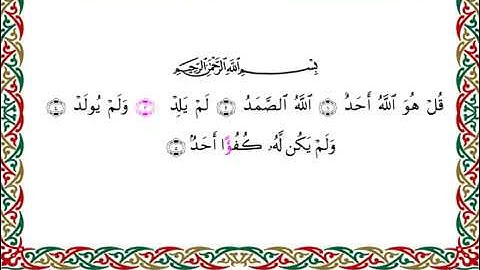 بِسْمِ ٱللَّهِ ٱلرَّحْمَٰنِ ٱلرَّحِيمِ
قُلۡ هُوَ ٱللَّهُ أَحَدٌ ١ ٱللَّهُ ٱلصَّمَدُ ٢ لَمۡ يَلِدۡ ٣ وَلَمۡ يُولَدۡ ٤
وَلَمۡ يَكُن لَّهُۥ كُفُؤًا أَحَدٌۢ ٥